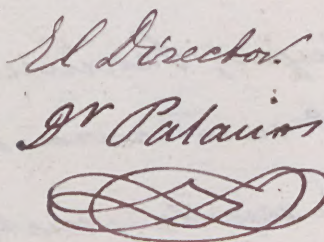 El Director.
Dr Palacios